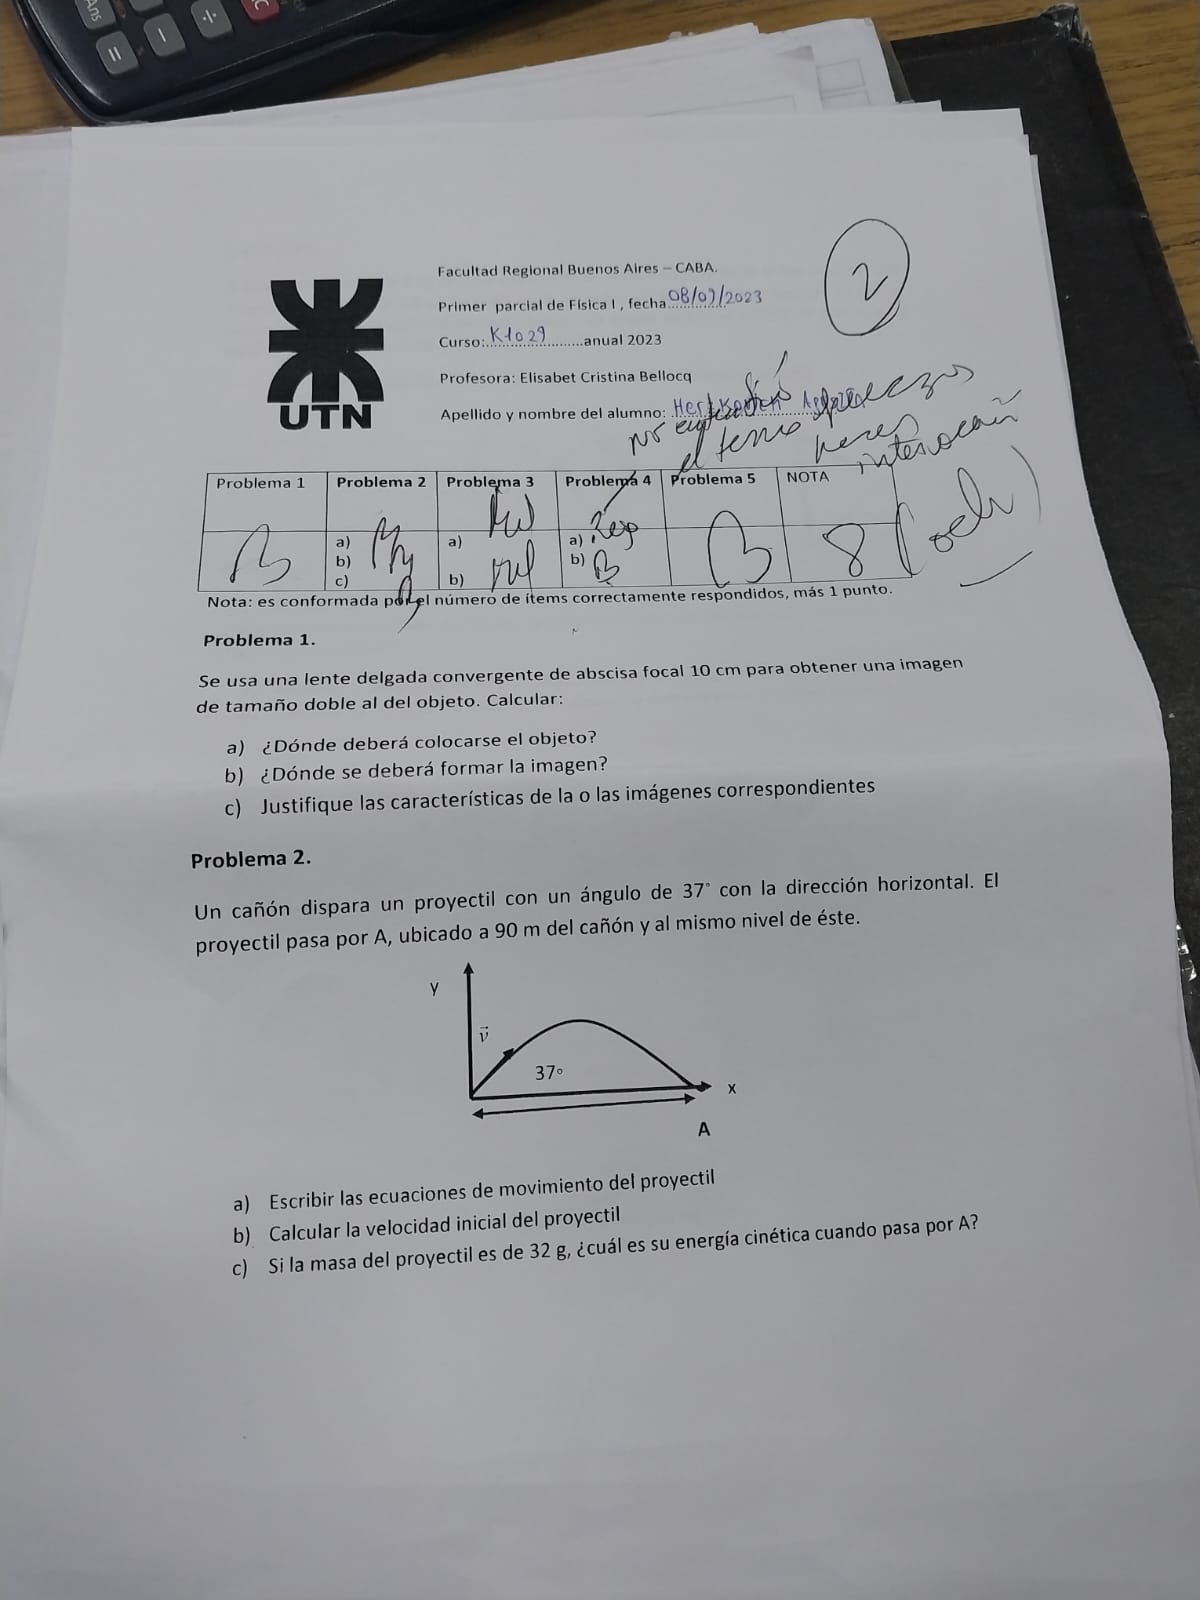 Ans
=
−
÷
Facultad Regional Buenos Aires – CABA.
Primer parcial de Física I , fecha 08/09/2023
2
Curso: K1029 anual 2023
Profesora: Elisabet Cristina Bellocq
UTN
Apellido y nombre del alumno:
no
el tema
Problema 1 Problema 2 Problema 3 Problema 4 Problema 5 NOTA
B a) b) c) a) b) a) b) B B 8 (ocho)
Nota: es conformada por el número de ítems correctamente respondidos, más 1 punto.
Problema 1.
Se usa una lente delgada convergente de abscisa focal 10 cm para obtener una imagen
de tamaño doble al del objeto. Calcular:
a) ¿Dónde deberá colocarse el objeto?
b) ¿Dónde se deberá formar la imagen?
c) Justifique las características de la o las imágenes correspondientes
Problema 2.
Un cañón dispara un proyectil con un ángulo de 37° con la dirección horizontal. El
proyectil pasa por A, ubicado a 90 m del cañón y al mismo nivel de éste.
y
v⃗
37°
x
A
a) Escribir las ecuaciones de movimiento del proyectil
b) Calcular la velocidad inicial del proyectil
c) Si la masa del proyectil es de 32 g, ¿cuál es su energía cinética cuando pasa por A?